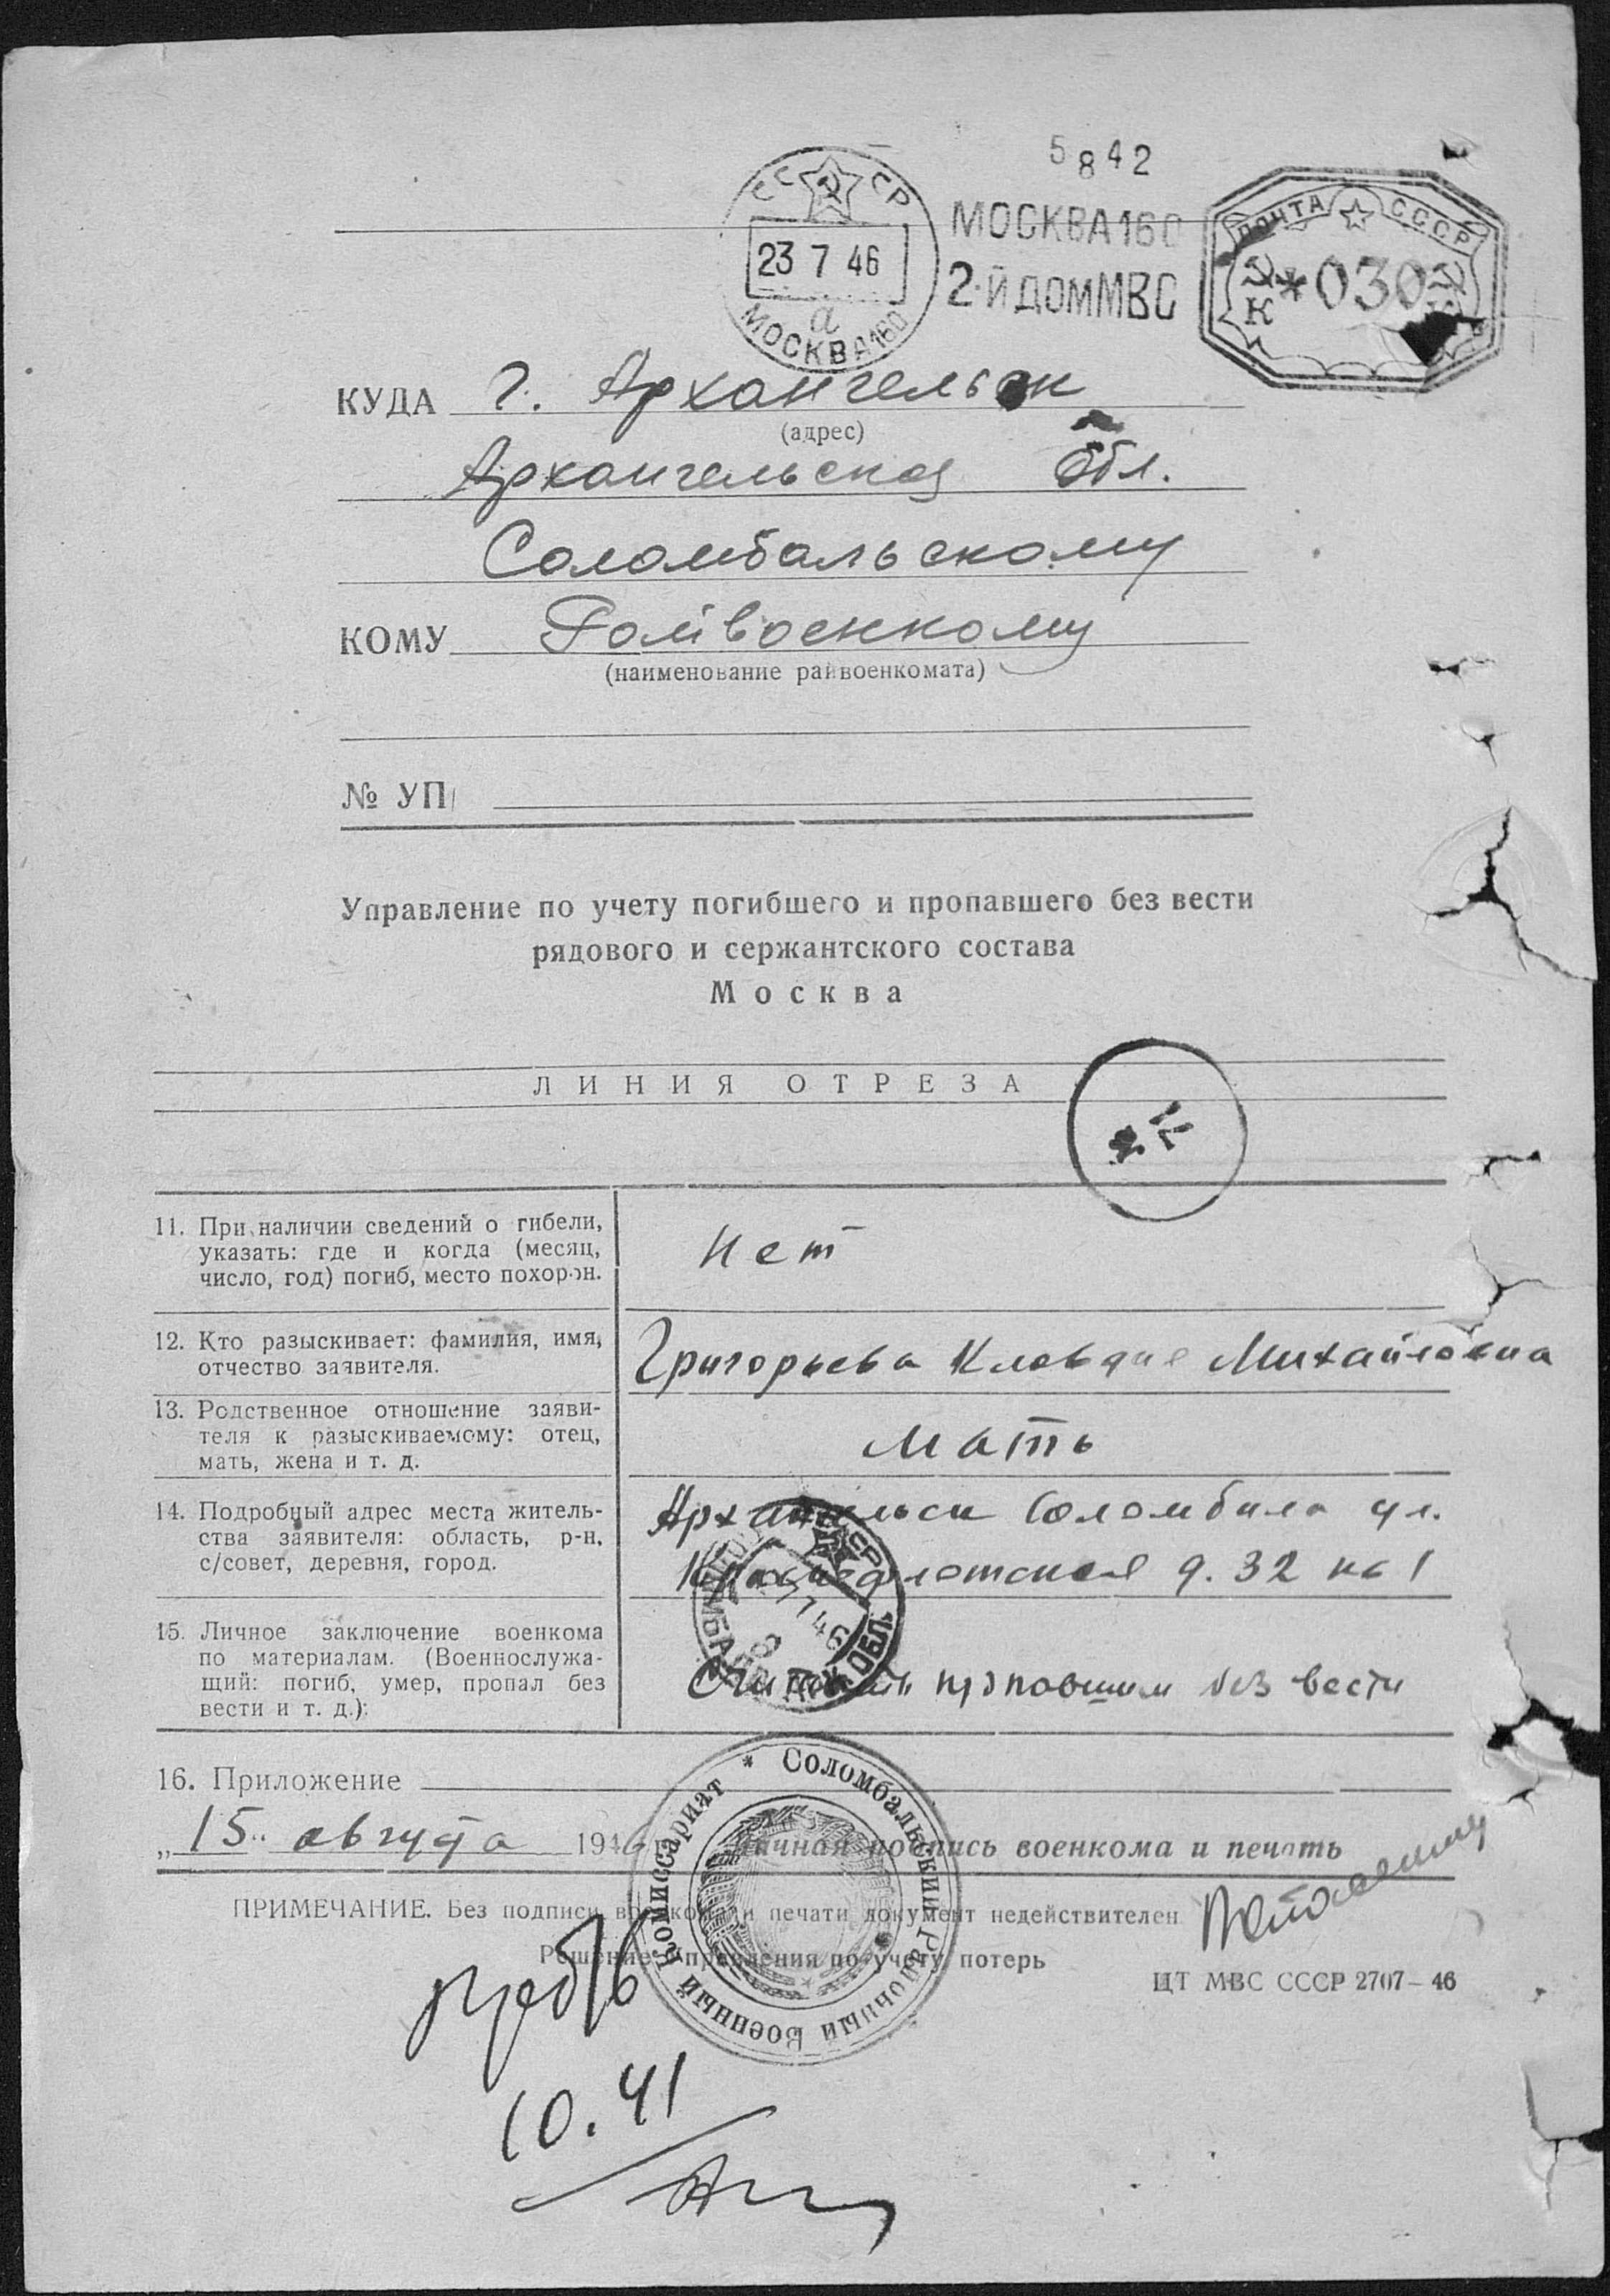 5842
СССР
23 7 46
а
МОСКВА 160
МОСКВА 160
2-Й ДОМ МВС
ПОЧТА СССР
К *030 К
КУДА г. Архангельск
(адрес)
Архангельская обл.
Соломбальскому
КОМУ Райвоенкому
(наименование райвоенкомата)
№ УП
Управление по учету погибшего и пропавшего без вести
рядового и сержантского состава
Москва
ЛИНИЯ ОТРЕЗА
11. При наличии сведений о гибели,
указать: где и когда (месяц,
число, год) погиб, место похорон.
Нет
12. Кто разыскивает: фамилия, имя,
отчество заявителя.
Григорьева Клавдия Михайловна
13. Родственное отношение заяви-
теля к разыскиваемому: отец,
мать, жена и т. д.
Мать
14. Подробный адрес места житель-
ства заявителя: область, р-н,
с/совет, деревня, город.
Архангельск Соломбала ул.
Краснофлотская д. 32 кв 1
15. Личное заключение военкома
по материалам. (Военнослужа-
щий: погиб, умер, пропал без
вести и т. д.):
Считать пропавшим без вести
16. Приложение
„15" августа 1946
Личная подпись военкома и печать
Соломбальский Районный Военный Комиссариат *
ПРИМЕЧАНИЕ. Без подписи военкома и печати документ недействителен
Решение Управления по учету потерь
ЦТ МВС СССР 2707–46
10.41